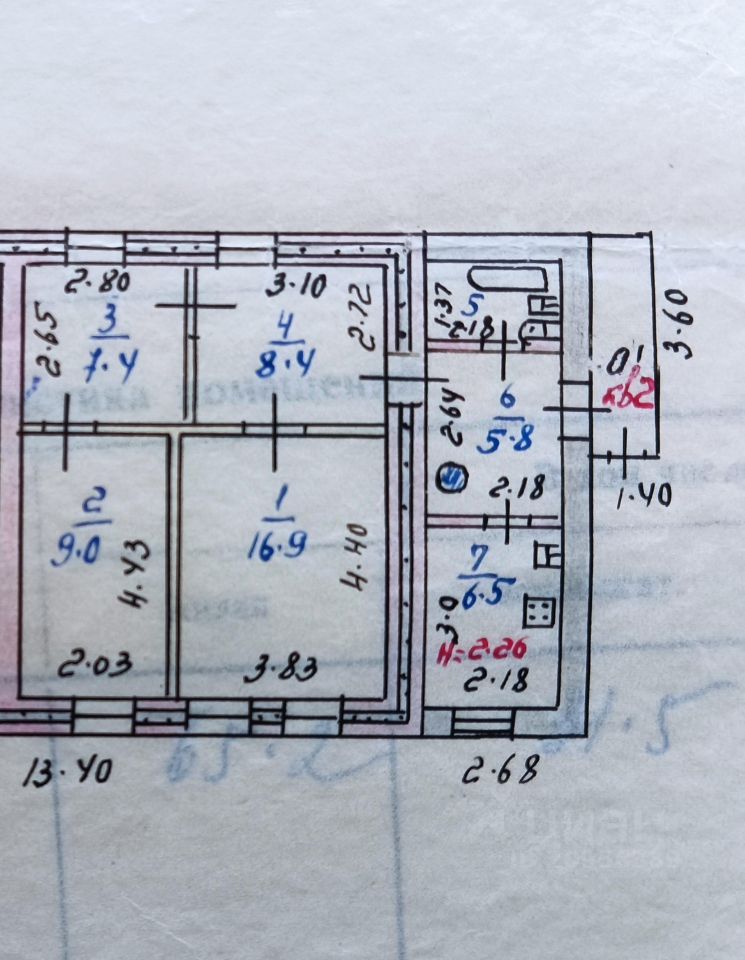 2.80
3.10
2.65
3
7.4
4
8.4
2.72
1.37
5
2.18
3.60
01
кв2
6
5.8
2.64
2.18
1.40
2
9.0
4.43
2.03
1
16.9
4.40
3.83
7
6.5
3.0
H=2.26
2.18
13.40
2.68
65.2